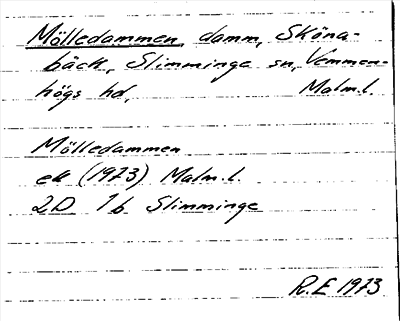 Mölledammen, damm, Sköna-
bäck, Slimminge sn, Vemmen-
högs hd, Malm.l.
Mölledammen
ek (1973) Malm.l.
2D 1b Slimminge
R.E 1973